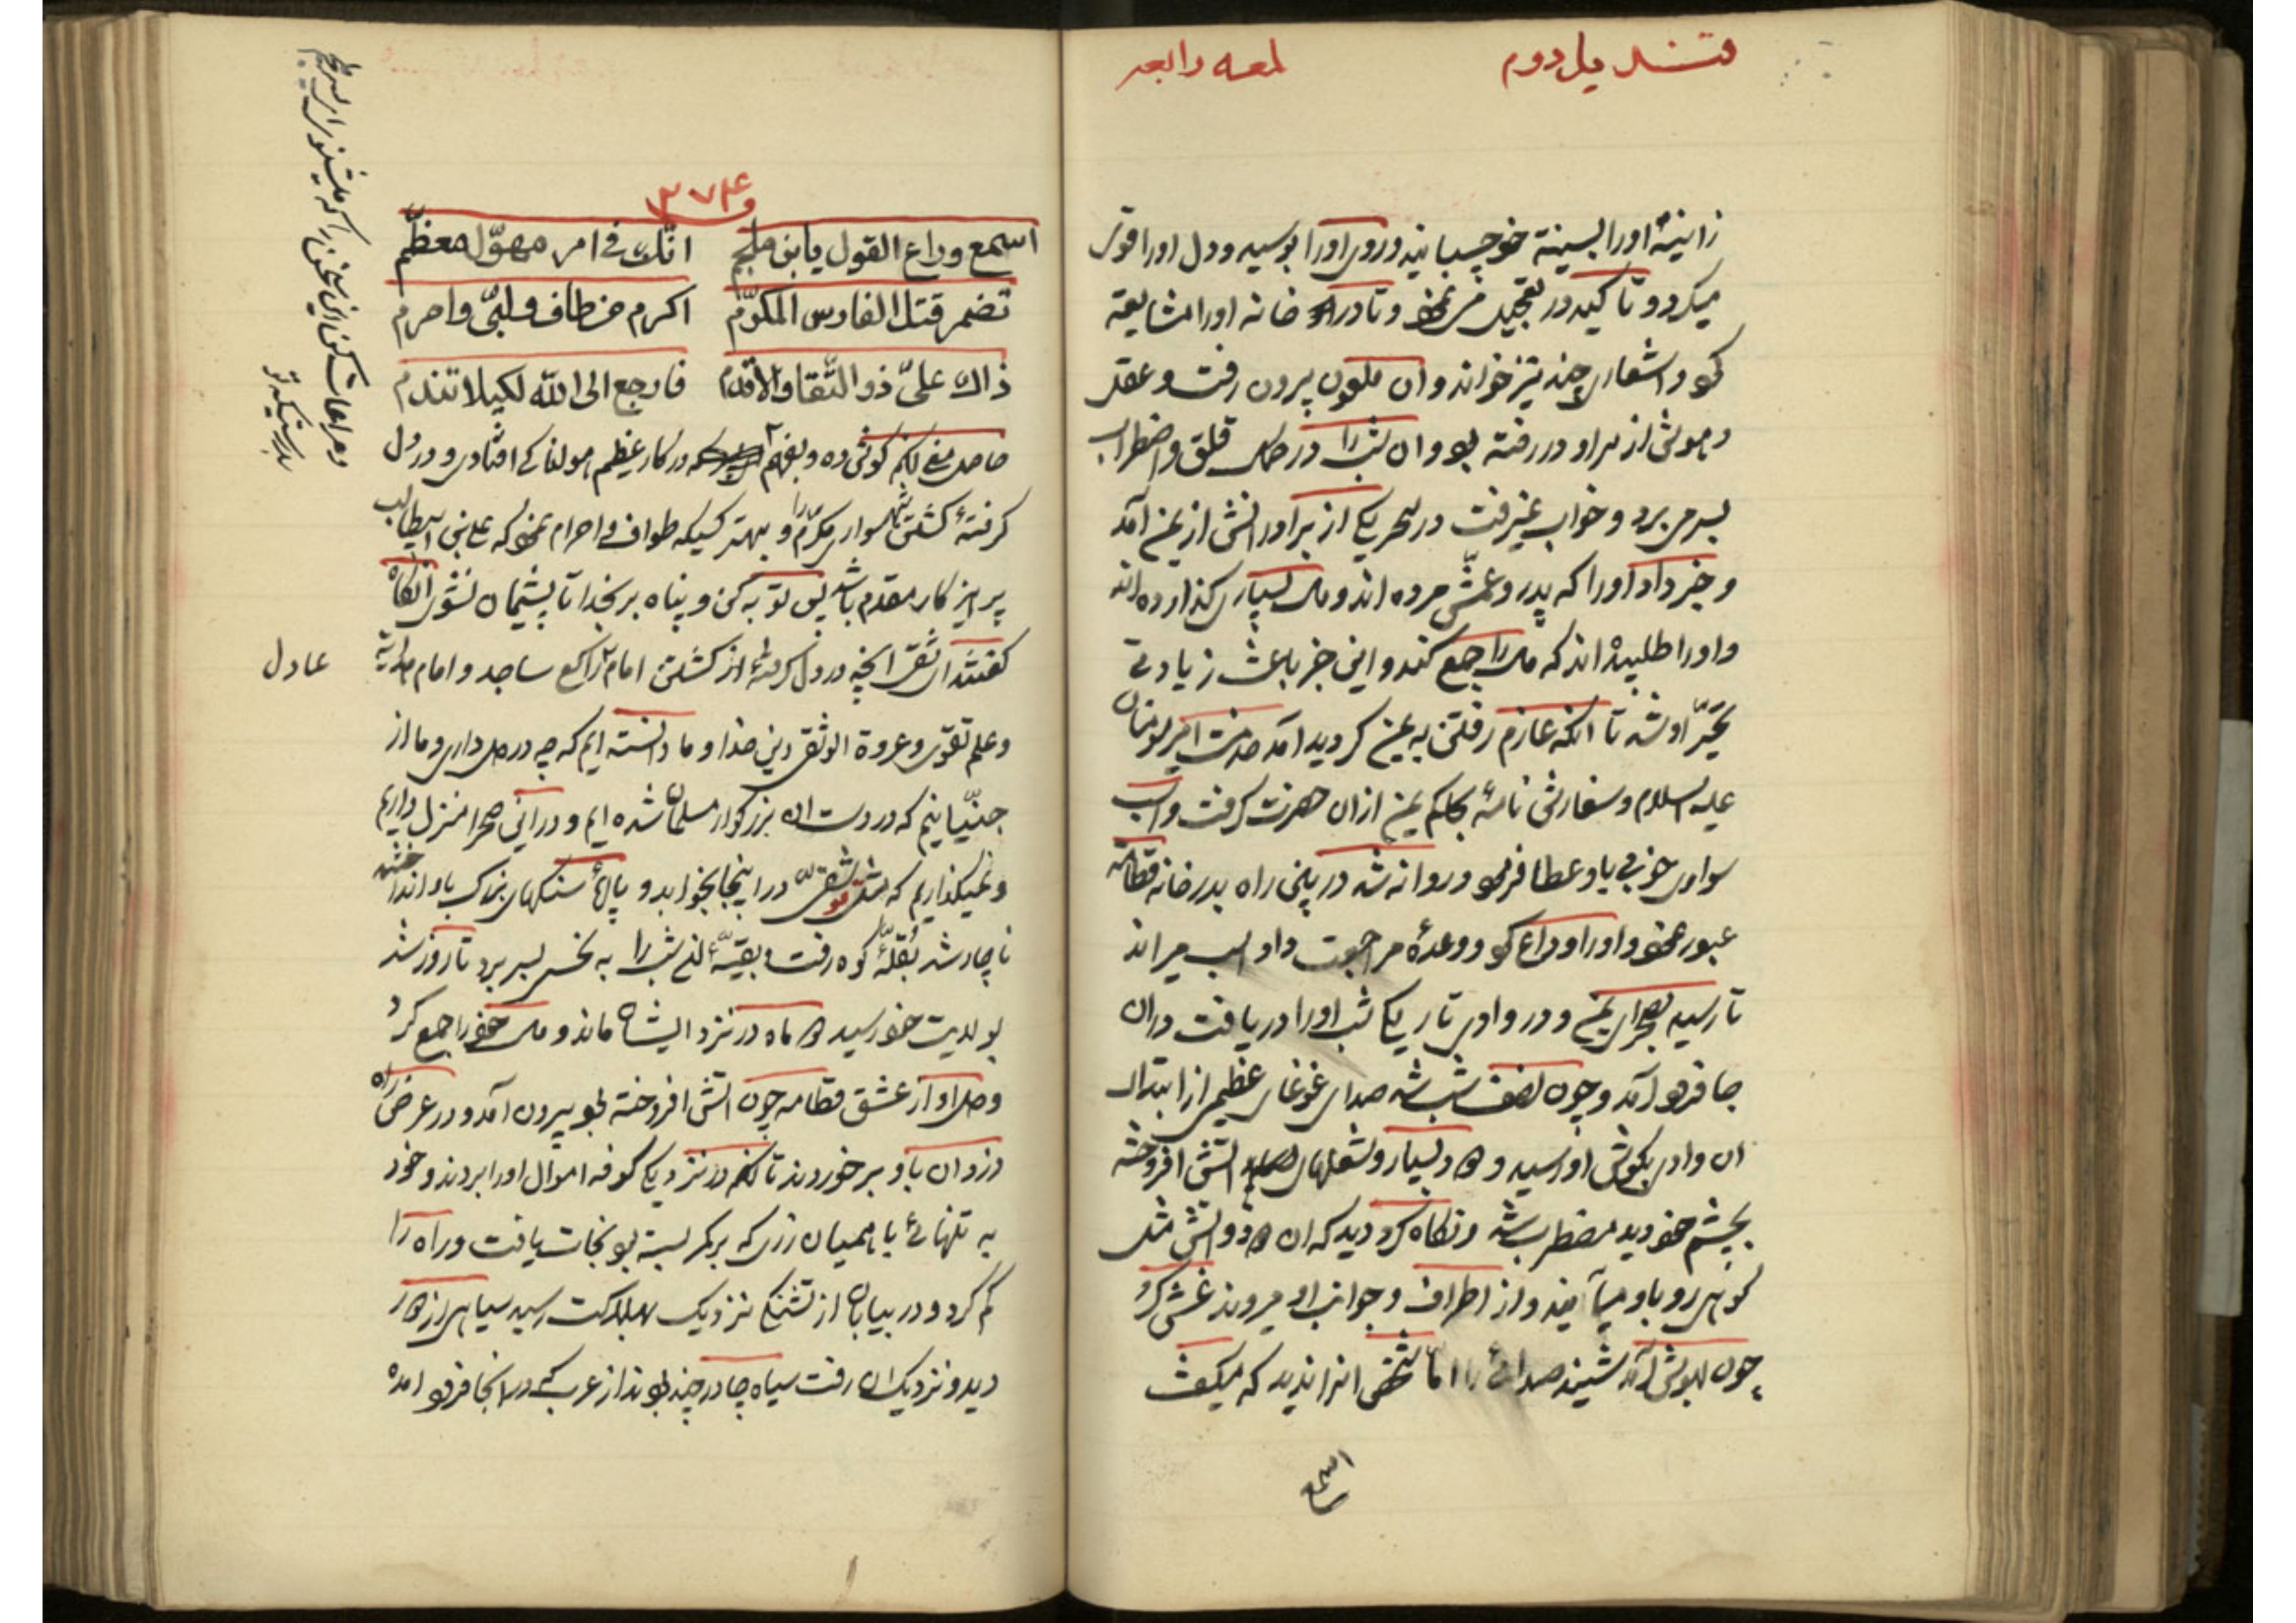 قندیل دوم لمعه رابعه
زانیهٔ اورا بسینهٔ خو چسبانید و روی اورا بوسید و دل اورا قوی
میکرد و تاکید در تعجیل می نمود و تا در خانه اورا مشایعة
کو و اشعاری چند نیز خواند و ان ملعون بیرون رفت و عقل
و هوش از سر او در رفته بود و ان شب را در کمال قلق و اضطراب
بسر می برد و خواب نمیرفت در سحر یکی از برادرانش از یمن آمد
و خبر داد اورا که پدر و عمش مرده اند و مال بسیاری کذارده اند
و اورا طلبیده اند که مال را جمع کند و این خبر باعث زیادتی
تحیّر او شد تا انکه عازم رفتن به یمن کردید امد خدمت امیرمومنان
علیه السلام و سفارش نامهٔ بحاکم یمن ازان حضرت کرفت و اسب
سواری خوبی باو عطا فرمو و روانه شد در بین راه بدر خانه قطامه
عبور نمو و اورا وداع کو و وعدهٔ مراجعت داد و اسب میراند
تا رسید بصحرای یمن و در وادی تاریکی شب اورا دریافت دران
جا فرو آمد و چون نصف شب شد صدای غوغای عظیمی از ابتدای
ان وادی بکوش او رسید و دود بسیار و شعلهای اتش افروخته
بچشم خو دید مضطرب شد و نکاه کرد دید که ان دود و اتش مثل
کوهی رو باو میآیند و از اطراف و جوانب او میروند غش کرد
چون بهوش آمد شنید صدائی را اما شخص انرا ندید که میکفت
اسمع
۳۷۴
اسمع وداع القول یابن ملجم انّک فی امر مهوّل معظّم
تضمر قتل الفارس المکرّم اکرم من طاف ولبّی واحرم
ذاک علیّ ذو التّقا والاقدم فارجع الی الله لکیلا تندم
حاصل معنی انکه کوش ده و بفهم در کار عظیم هولناکی افتادی و در دل
کرفتهٔ کشتن سواری مکرّم را و بهتر کسیکه طواف و احرام نمود که علی بن ابیطالب
پرهیزکار مقدم باشد پس توبه کن و پناه بر بخدا تا پشیمان نشوی انکاه
کفتند ای شقی انچه در دل کرفتهٔ از کشتن امام راکع ساجد و امام هدایة
عادل
و علم تقوی و عروة الوثقی دین خدا و ما دانسته ایم که چه در دل داری و ما از
جنّیانیم که در دست ان بزرکوار مسلمان شده ایم و دراین صحرا منزل داریم
و نمیکذاریم که شقیّ در اینجا بخوابد و پارهٔ سنکهای بزرک باو انداختند
ناچار شد بقلّهٔ کوه رفت و بقیّهٔ ان شب را به نحسی بسر برد تا روز شد
بولایت خو رسید دو ماه در نزد ایشان ماند و مال خو را جمع کرد
و دل او از عشق قطامه چون اتش افروخته بود بیرون آمد و در عرض راه
دزدان باو برخوردند تا انکه در نزدیکی کوفه اموال اورا بردند و خود
به تنهائی با همیان زری که بر کمر بسته بود نجات یافت و راه را
کم کرد و در بیابان از تشنکی نزدیک بهلاکت رسید سیاهی از دور
دید و نزدیک ان رفت سیاه چادر چند بودند از عرب که در انجا فرو امده